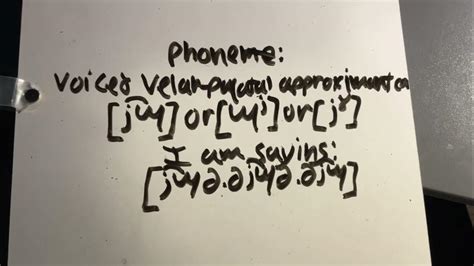 phoneme:
Voiced Velar-palatal approximant
[j͡ɰ] or [ɰʲ] or [jˠ]
I am saying:
[j͡ɰ∂.∂j͡ɰ∂.∂j͡ɰ]